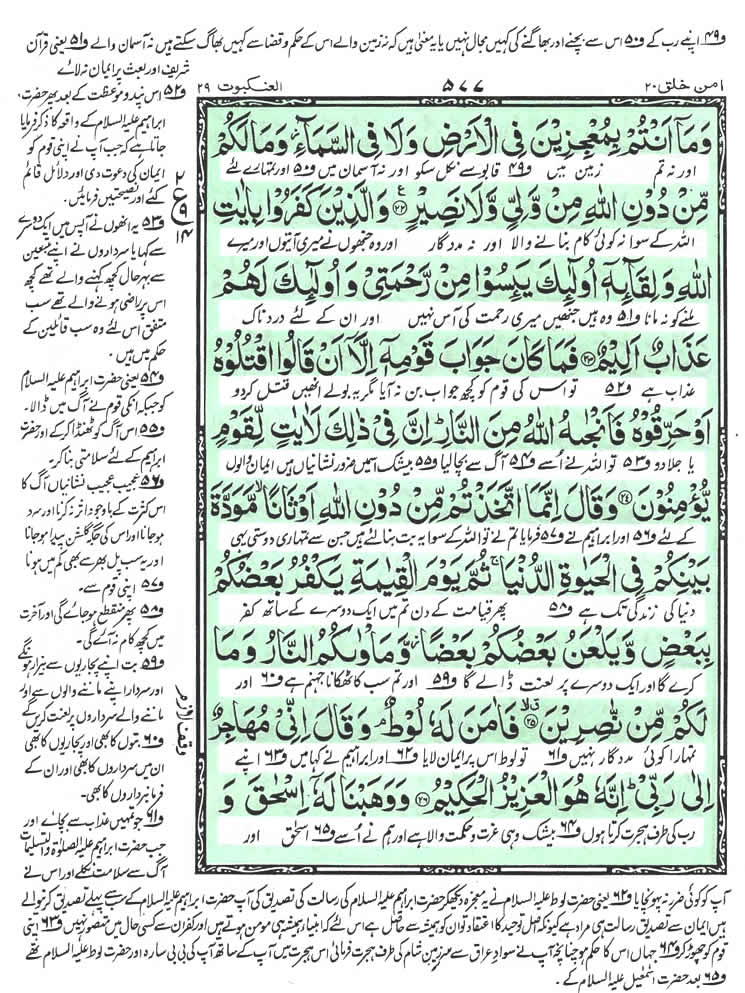 و۴۹ اپنے رب کے و۵۰ اس سے بچنے اور بھاگنے کی کہیں مجال نہیں یا یہ معنٰی ہیں کہ نہ زمین والے اس کے حکم و قضا سے کہیں بھاگ سکتے ہیں نہ آسمان والے و۵۱ یعنی قرآن
شریف اور بعث پر ایمان نہ لائے
امن خلق ۲۰
۵۷۷
العنکبوت ۲۹
وَمَآ اَنْتُمْ بِمُعْجِزِیْنَ فِی الْاَرْضِ وَلَا فِی السَّمَآءِ وَمَا لَكُمْ
اور نہ تم زمین میں و۴۹ قابو سے نکل سکو اور نہ آسمان میں و۵۰ اور تمہارے لئے
مِّنْ دُوْنِ اللّٰهِ مِنْ وَّلِیٍّ وَّلَا نَصِیْرٍ ﴿۲۲﴾ وَالَّذِیْنَ كَفَرُوْا بِاٰیٰتِ
اللہ کے سوا نہ کوئی کام بنانے والا اور نہ مددگار اور وہ جنھوں نے میری آیتوں اور میرے
اللّٰهِ وَلِقَآئِهٖۤ اُولٰٓئِكَ یَئِسُوْا مِنْ رَّحْمَتِیْ وَاُولٰٓئِكَ لَهُمْ
ملنے کو نہ مانا و۵۱ وہ ہیں جنھیں میری رحمت کی آس نہیں اور ان کے لئے دردناک
عَذَابٌ اَلِیْمٌ ﴿۲۳﴾ فَمَا كَانَ جَوَابَ قَوْمِهٖۤ اِلَّاۤ اَنْ قَالُوا اقْتُلُوْهُ
عذاب ہے و۵۲ تو اس کی قوم کو کچھ جواب بن نہ آیا مگر یہ بولے انھیں قتل کردو
اَوْ حَرِّقُوْهُ فَاَنْجٰىهُ اللّٰهُ مِنَ النَّارِ ؕ اِنَّ فِیْ ذٰلِكَ لَاٰیٰتٍ لِّقَوْمٍ
یا جلا دو و۵۳ تو اللہ نے اُسے و۵۴ آگ سے بچا لیا و۵۵ بیشک اس میں ضرور نشانیاں ہیں ایمان والوں
یُّؤْمِنُوْنَ ﴿۲۴﴾ وَقَالَ اِنَّمَا اتَّخَذْتُمْ مِّنْ دُوْنِ اللّٰهِ اَوْثَانًا ۙ مَّوَدَّةَ
کے لئے و۵۶ اور ابراہیم نے و۵۷ فرمایا تم نے تو اللہ کے سوا یہ بت بنا لئے ہیں جن سے تمہاری دوستی یہی
بَیْنِكُمْ فِی الْحَیٰوةِ الدُّنْیَا ۚ ثُمَّ یَوْمَ الْقِیٰمَةِ یَكْفُرُ بَعْضُكُمْ
دنیا کی زندگی تک ہے و۵۸ پھر قیامت کے دن تم میں ایک دوسرے کے ساتھ کفر
بِبَعْضٍ وَّیَلْعَنُ بَعْضُكُمْ بَعْضًا ۫ وَّمَاْوٰىكُمُ النَّارُ وَمَا
کرے گا اور ایک دوسرے پر لعنت ڈالے گا و۵۹ اور تم سب کا ٹھکانا جہنم ہے و۶۰ اور
لَكُمْ مِّنْ نّٰصِرِیْنَ ﴿۲۵﴾ فَاٰمَنَ لَهٗ لُوْطٌ ۘ وَقَالَ اِنِّیْ مُهَاجِرٌ
تمہارا کوئی مددگار نہیں و۶۱ تو لوط اس پر ایمان لایا و۶۲ اور ابراہیم نے کہا میں و۶۳ اپنے
اِلٰی رَبِّیْ ؕ اِنَّهٗ هُوَ الْعَزِیْزُ الْحَكِیْمُ ﴿۲۶﴾ وَوَهَبْنَا لَهٗۤ اِسْحٰقَ وَ
رب کی طرف ہجرت کرتا ہوں و۶۴ بیشک وہی عزت و حکمت والا ہے اور ہم نے اُسے و۶۵ اسحٰق اور
۲
ع
۹
۱۴
وقف لازم
و۵۲ اس پند و موعظت کے بعد پھر حضرت
ابراہیم علیہ السلام کے واقعہ کا ذکر فرمایا
جاتا ہے کہ جب آپ نے اپنی قوم کو
ایمان کی دعوت دی اور دلائل قائم
کئے اور نصیحتیں فرمائیں۔
و۵۳ یہ انھوں نے آپس میں ایک دوسرے
سے کہا یا سرداروں نے اپنے متبعین
سے بہرحال کچھ کہنے والے تھے کچھ
اس پر راضی ہونے والے تھے سب
متفق اس لئے وہ سب قائلین کے
حکم میں ہیں۔
و۵۴ یعنی حضرت ابراہیم علیہ السلام
کو جبکہ انکی قوم نے آگ میں ڈالا۔
و۵۵ اس آگ کو ٹھنڈا کر کے اور حضرت
ابراہیم کے لئے سلامتی بنا کر۔
و۵۶ عجیب عجیب نشانیاں آگ کا
اس کثرت کے باوجود اثر نہ کرنا اور سرد
ہوجانا اور اس کی جگہ گلشن پیدا ہوجانا
اور یہ سب پل بھر سے بھی کم میں ہونا
و۵۷ اپنی قوم سے۔
و۵۸ پھر منقطع ہوجائے گی اور آخرت
میں کچھ کام نہ آئے گی۔
و۵۹ بت اپنے پجاریوں سے بیزار ہونگے
اور سردار اپنے ماننے والوں سے اور
ماننے والے سرداروں پر لعنت کریں گے
و۶۰ بتوں کا بھی اور پجاریوں کا بھی
ان میں سرداروں کا بھی اور ان کے
فرمانبرداروں کا بھی۔
و۶۱ جو تمہیں عذاب سے بچائے اور
جب حضرت ابراہیم علیہ الصلوٰۃ والتسلیمات
آگ سے سلامت نکلے اور اس نے
آپ کو کوئی ضرر نہ پہونچایا و۶۲ یعنی حضرت لوط علیہ السلام نے یہ معجزہ دیکھ کر حضرت ابراہیم علیہ السلام کی رسالت کی تصدیق کی آپ حضرت ابراہیم علیہ السلام کے سب سے پہلے تصدیق کرنیوالے
ہیں ایمان سے تصدیق رسالت ہی مراد ہے کیونکہ اصل توحید کا اعتقاد تو ان کو ہمیشہ سے حاصل ہے اس لئے کہ انبیاء ہمیشہ ہی مومن ہوتے ہیں اور کفر ان سے کسی حال میں متصور نہیں و۶۳ اپنی
قوم کو چھوڑ کر و۶۴ جہاں اس کا حکم ہو چنانچہ آپ نے سواد عراق سے سرزمین شام کی طرف ہجرت فرمائی اس ہجرت میں آپ کے ساتھ آپ کی بی بی سارہ اور حضرت لوط علیہ السلام تھے
و۶۵ بعد حضرت اسمٰعیل علیہ السلام کے۔